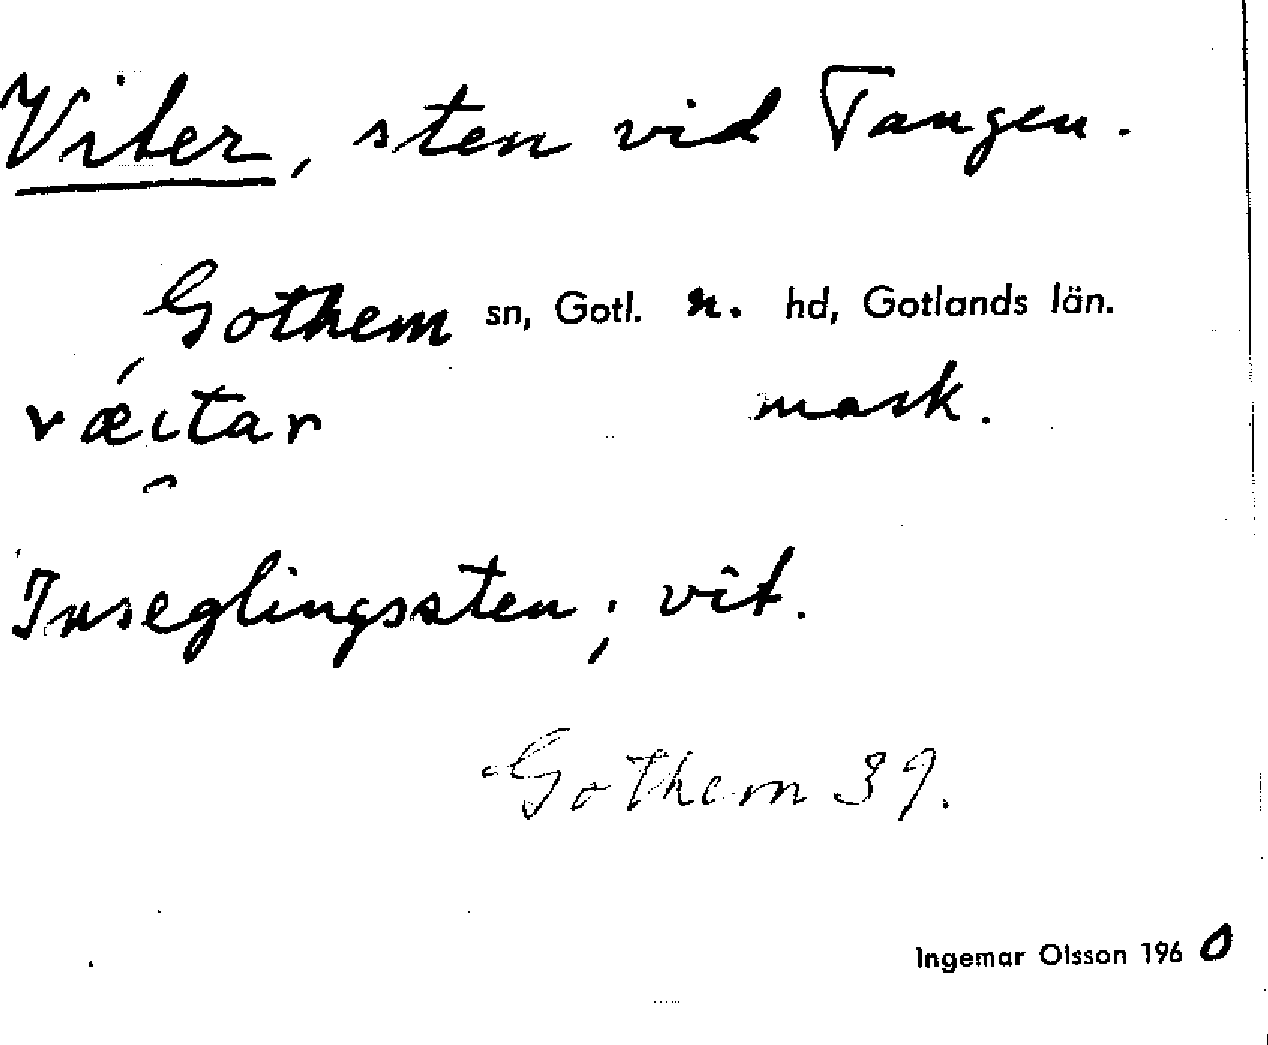 Viter, sten vid Tangen.
Gothem sn, Gotl. n. hd, Gotlands län.
vǽi̯tar mask.
Inseglingssten; vit.
Gothem 39.
Ingemar Olsson 1960